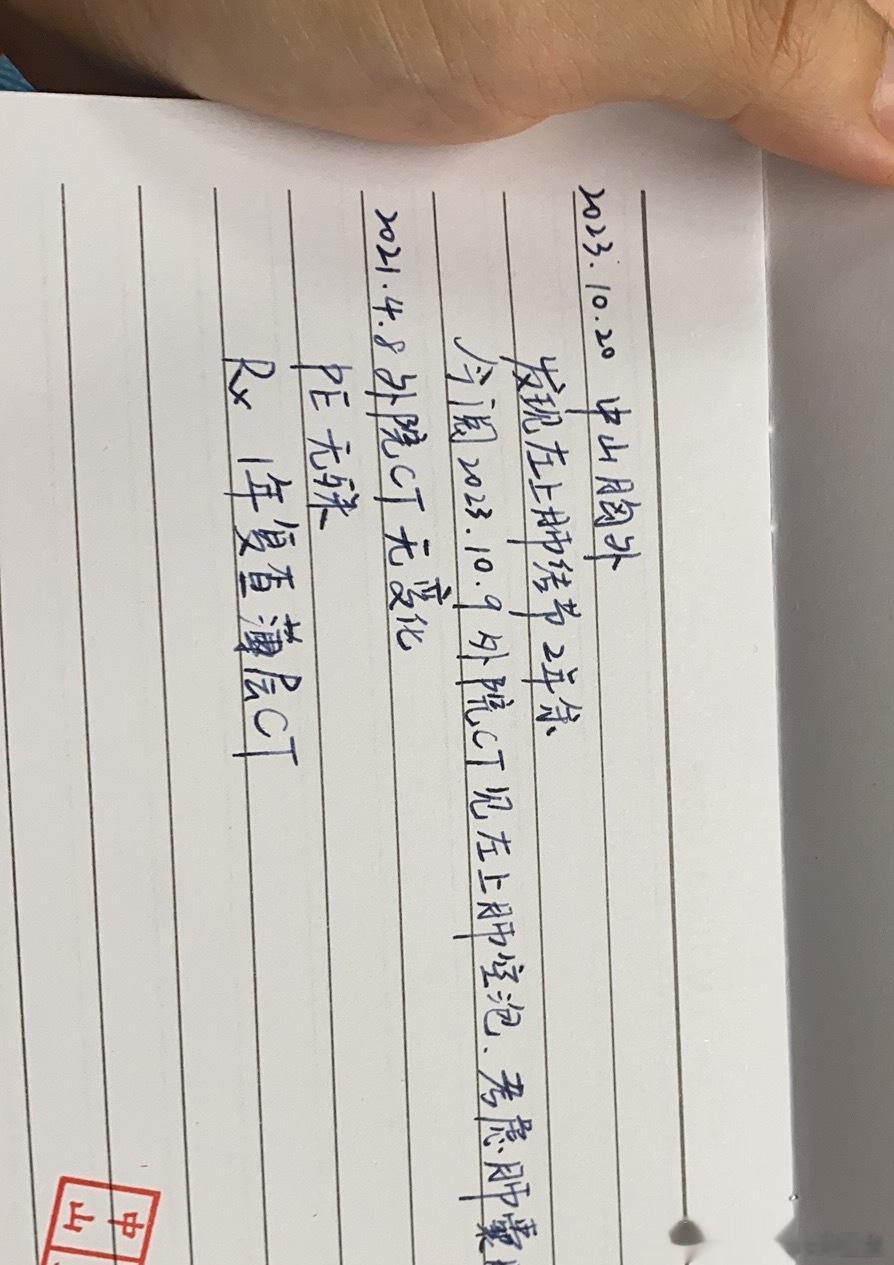 2023.10.20 中山胸外
发现左上肺结节2年余
今阅2023.10.9外院CT见左上肺空泡、考虑肺囊
2021.4.8外院CT无变化
PE无殊
Rx 1年复查薄层CT
中山